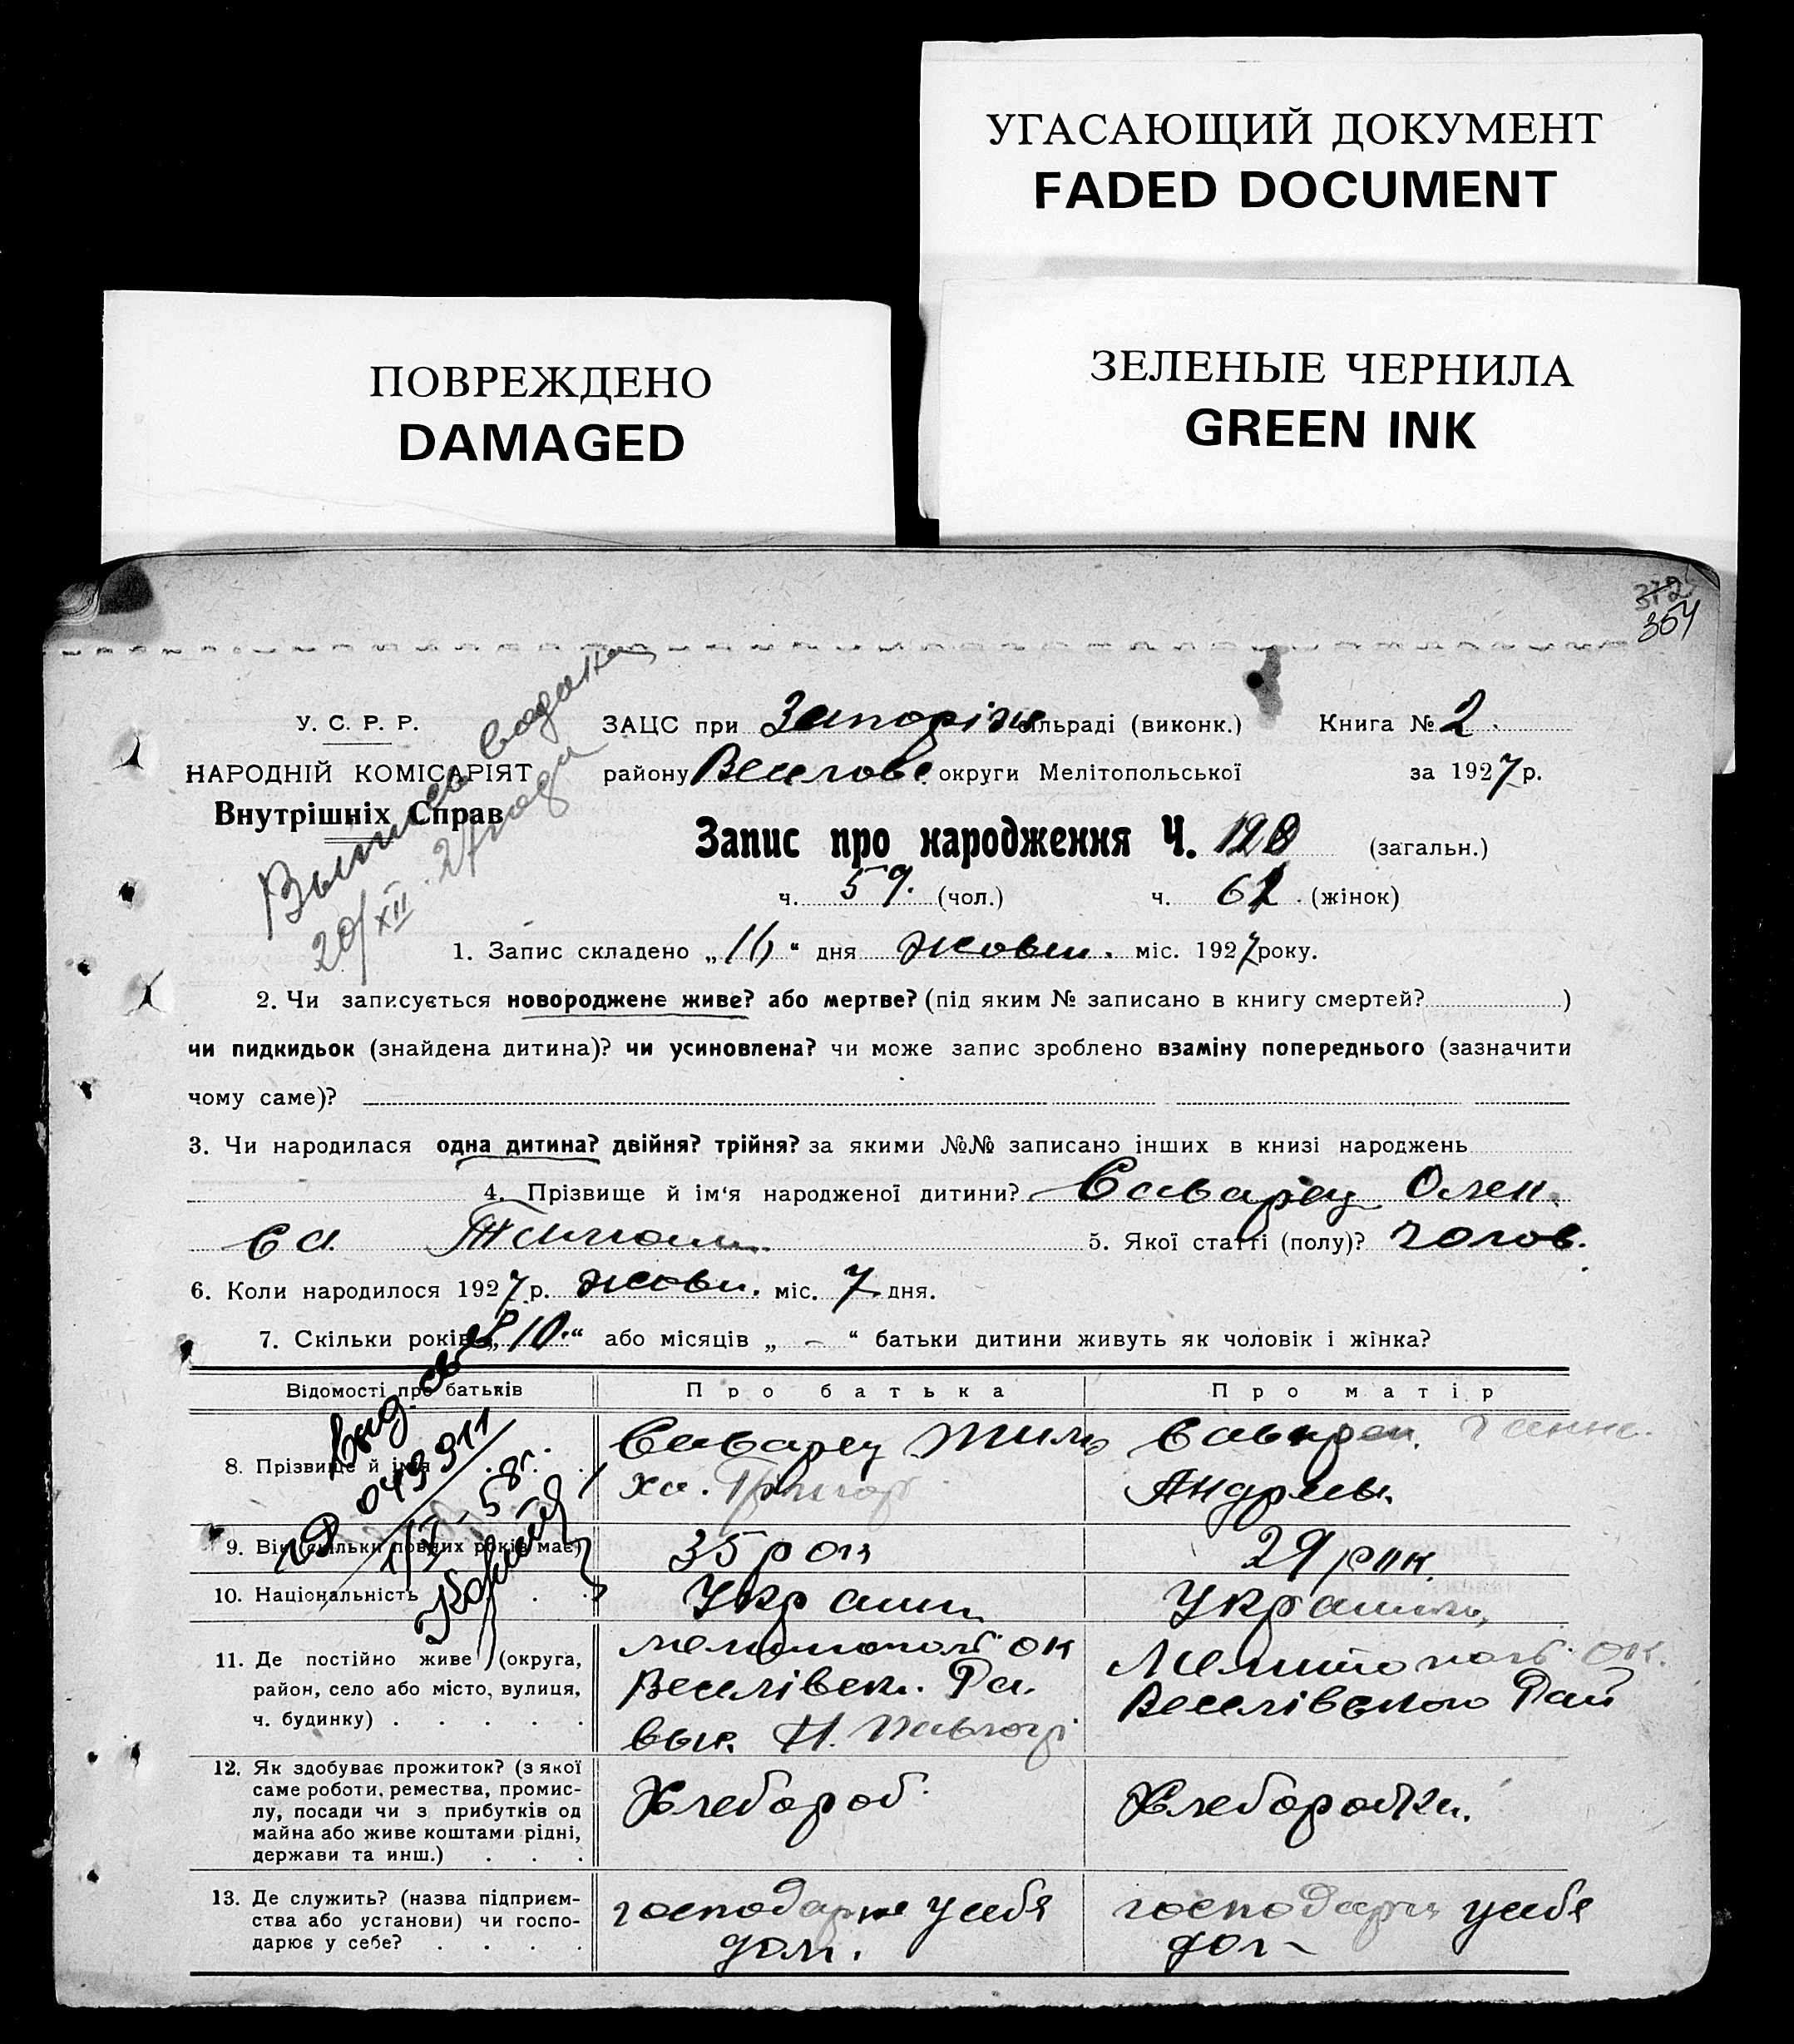 УГАСАЮЩИЙ ДОКУМЕНТ
FADED DOCUMENT
ПОВРЕЖДЕНО
DAMAGED
ЗЕЛЕНЫЕ ЧЕРНИЛА
GREEN INK
372
354
У. С. Р. Р.
НАРОДНІЙ КОМІСАРІЯТ
Внутрішніх Справ
20/XII
ЗАЦС при Запоріж сільраді (виконк.) Книга № 2.
району Веселове. округи Мелітопольської за 1927 р.
Запис про народження Ч. 120 (загальн.)
ч. 59. (чол.) ч. 61. (жінок)
1. Запис складено „16“ дня жовт. міс. 1927 року.
2. Чи записується новороджене живе? або мертве? (під яким № записано в книгу смертей? )
чи пидкидьок (знайдена дитина)? чи усиновлена? чи може запис зроблено взаміну попереднього (зазначити
чому саме)?
3. Чи народилася одна дитина? двійня? трійня? за якими №№ записано інших в книзі народжень
4. Прізвище й ім'я народженої дитини? Саварец Олек.
са. 5. Якої статті (полу)? Чолов.
6. Коли народилося 1927 р. жовт. міс. 7 дня.
7. Скільки років „10.“ або місяців „ – “ батьки дитини живуть як чоловік і жінка?
Відомості про батьків Про батька Про матір
8. Прізвище й імя Саварец Саварец. Ганна.
ха. Григор Андреев.
выд. св
049311
58 г.
9. Вік (скільки повних років має) 35 рок 29 рик.
10. Національність Україн Україн
11. Де постійно живе (округа,
район, село або місто, вулиця,
ч. будинку)
Мелитополь ок
Веселівск. Ра.
Мелитополь ок.
Веселівского Рай
12. Як здобуває прожиток? (з якої
саме роботи, ремества, промис-
лу, посади чи з прибутків од
майна або живе коштами рідні,
держави та инш.)
Хлебороб.
Хлеборобка.
13. Де служить? (назва підприєм-
ства або установи) чи госпо-
дарює у себе?
господарює у себя
дом.
господарює у себя
дом